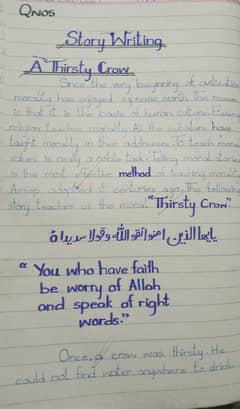 QNO5
Story Writing
A Thirsty Crow
Since the very beginning of civilization
morality has enjoyed supreme worth. The reason
is that it is the basis of human culture. Every
religion teaches morality. All the scholars have
taught morality in their addresses. To teach moral
values is really a noble task. Telling moral stories
is the most effective method of teaching morality.
Aesop adopted it centuries ago. The following
story teaches us the moral "Thirsty Crow".
یایھا الذین امنوا تقوا اللہ وقولا سدیداہ
" You who have faith
be worry of Allah
and speak of right
words."
Once, a crow was thirsty. He
could not find water anywhere to drink.